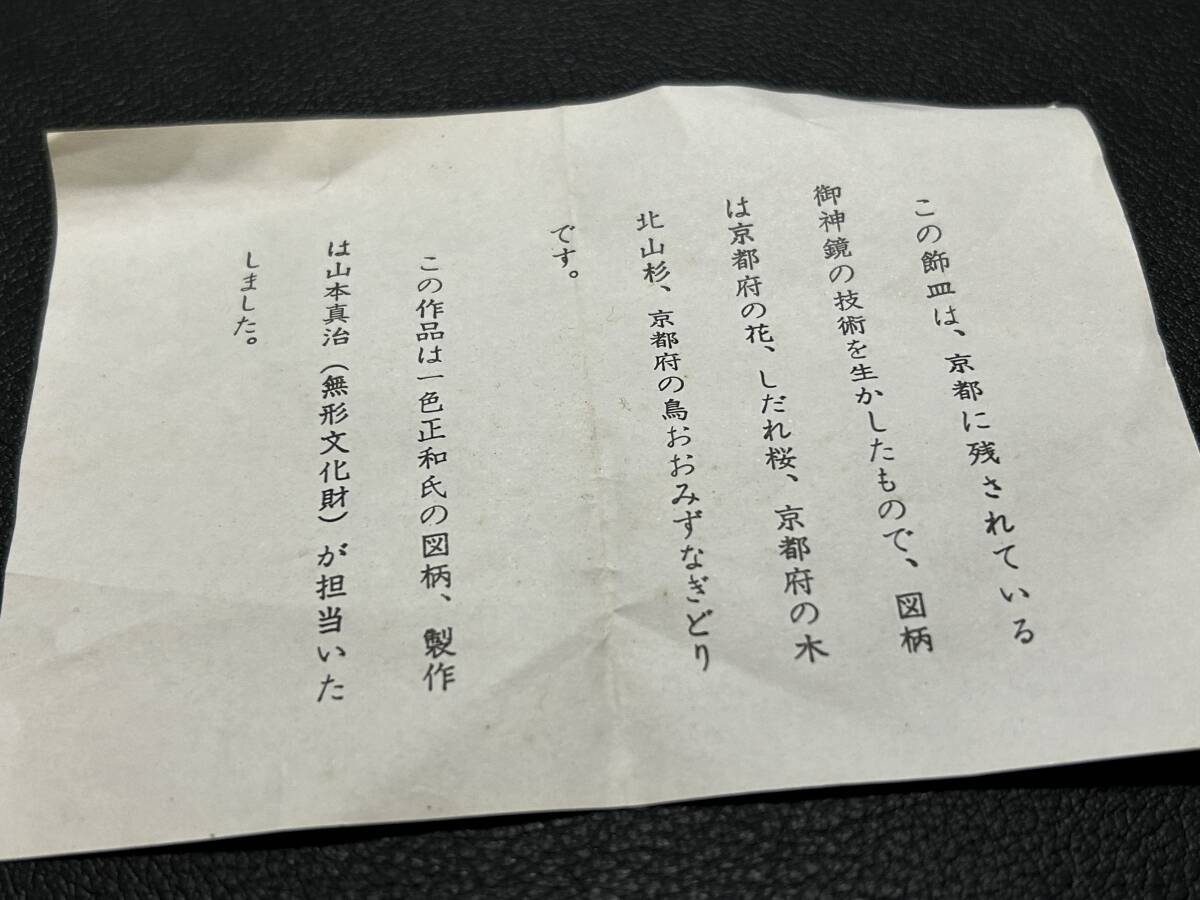 この飾皿は、京都に残されている
御神鏡の技術を生かしたもので、図柄
は京都府の花、しだれ桜、京都府の木
北山杉、京都府の鳥おおみずなぎどり
です。
この作品は一色正和氏の図柄、製作
は山本真治（無形文化財）が担当いた
しました。